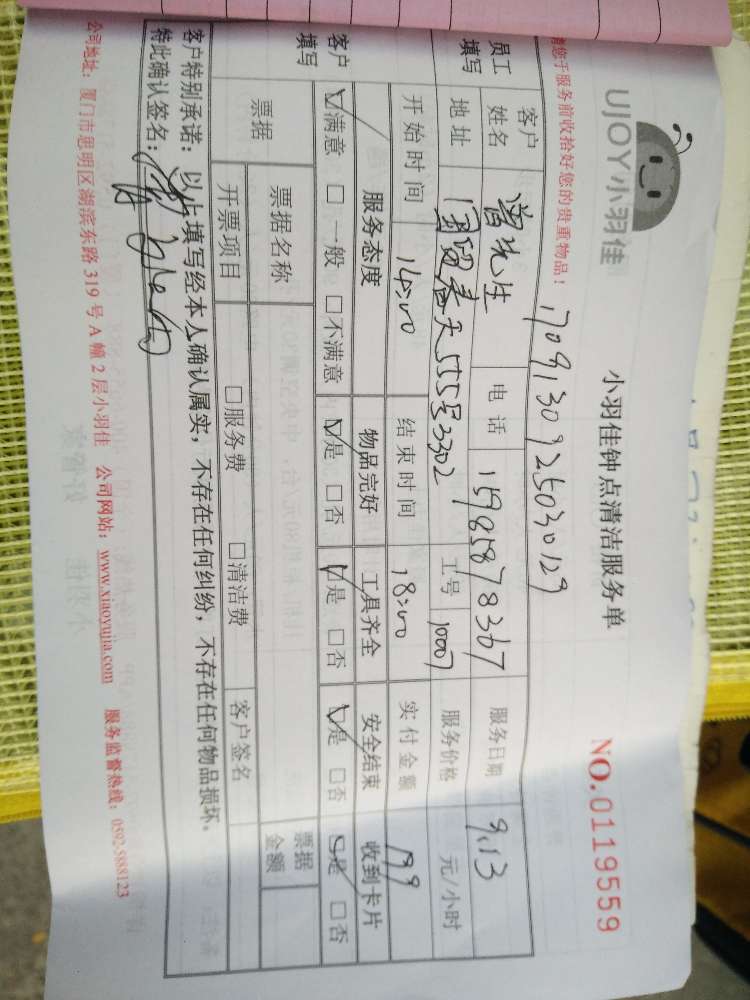 UJOY小羽佳
小羽佳钟点清洁服务单
NO.0119559
请您于服务前收拾好您的贵重物品！
17091309250301​29
员工填写
客户姓名 曾先生 电话 15985878367 服务日期 9.13
地址 国贸春天555号3302 工号 10007 服务价格 元/小时
开始时间 14:00 结束时间 18:00 实付金额 199
客户填写
服务态度 物品完好 工具齐全 安全结束 收到卡片
☑满意 □一般 □不满意 ☑是 □否 ☑是 □否 ☑是 □否 ☑是 □否
票据 票据名称 票据金额
开票项目 □服务费 □清洁费 客户签名
客户特别承诺：以上填写经本人确认属实，不存在任何纠纷，不存在任何物品损坏。
特此确认签名：
公司地址：厦门市思明区湖滨东路 319 号 A 幢 2 层小羽佳 公司网站：www.xiaoyujia.com 服务监督热线：0592-5888123